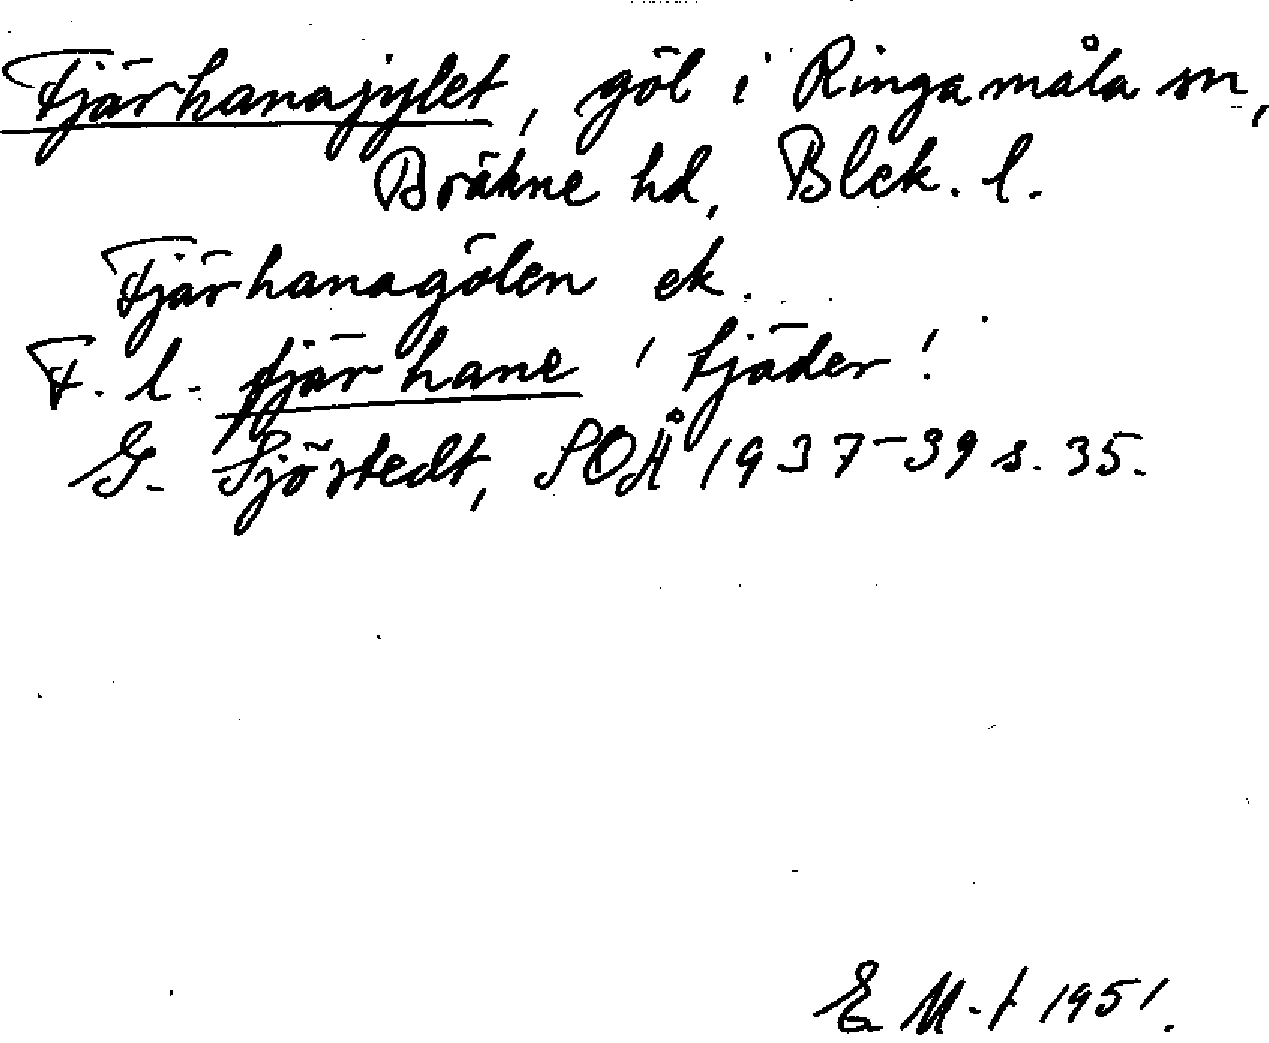 Fjärhanajylet, göl i Ringamåla sn,
Bräkne hd, Blek. l.
Fjärhanagölen ek.
F. l. fjärhane 'tjäder'.
G. Sjöstedt, SOÅ 1937-39 s. 35.
E M-t 1951.